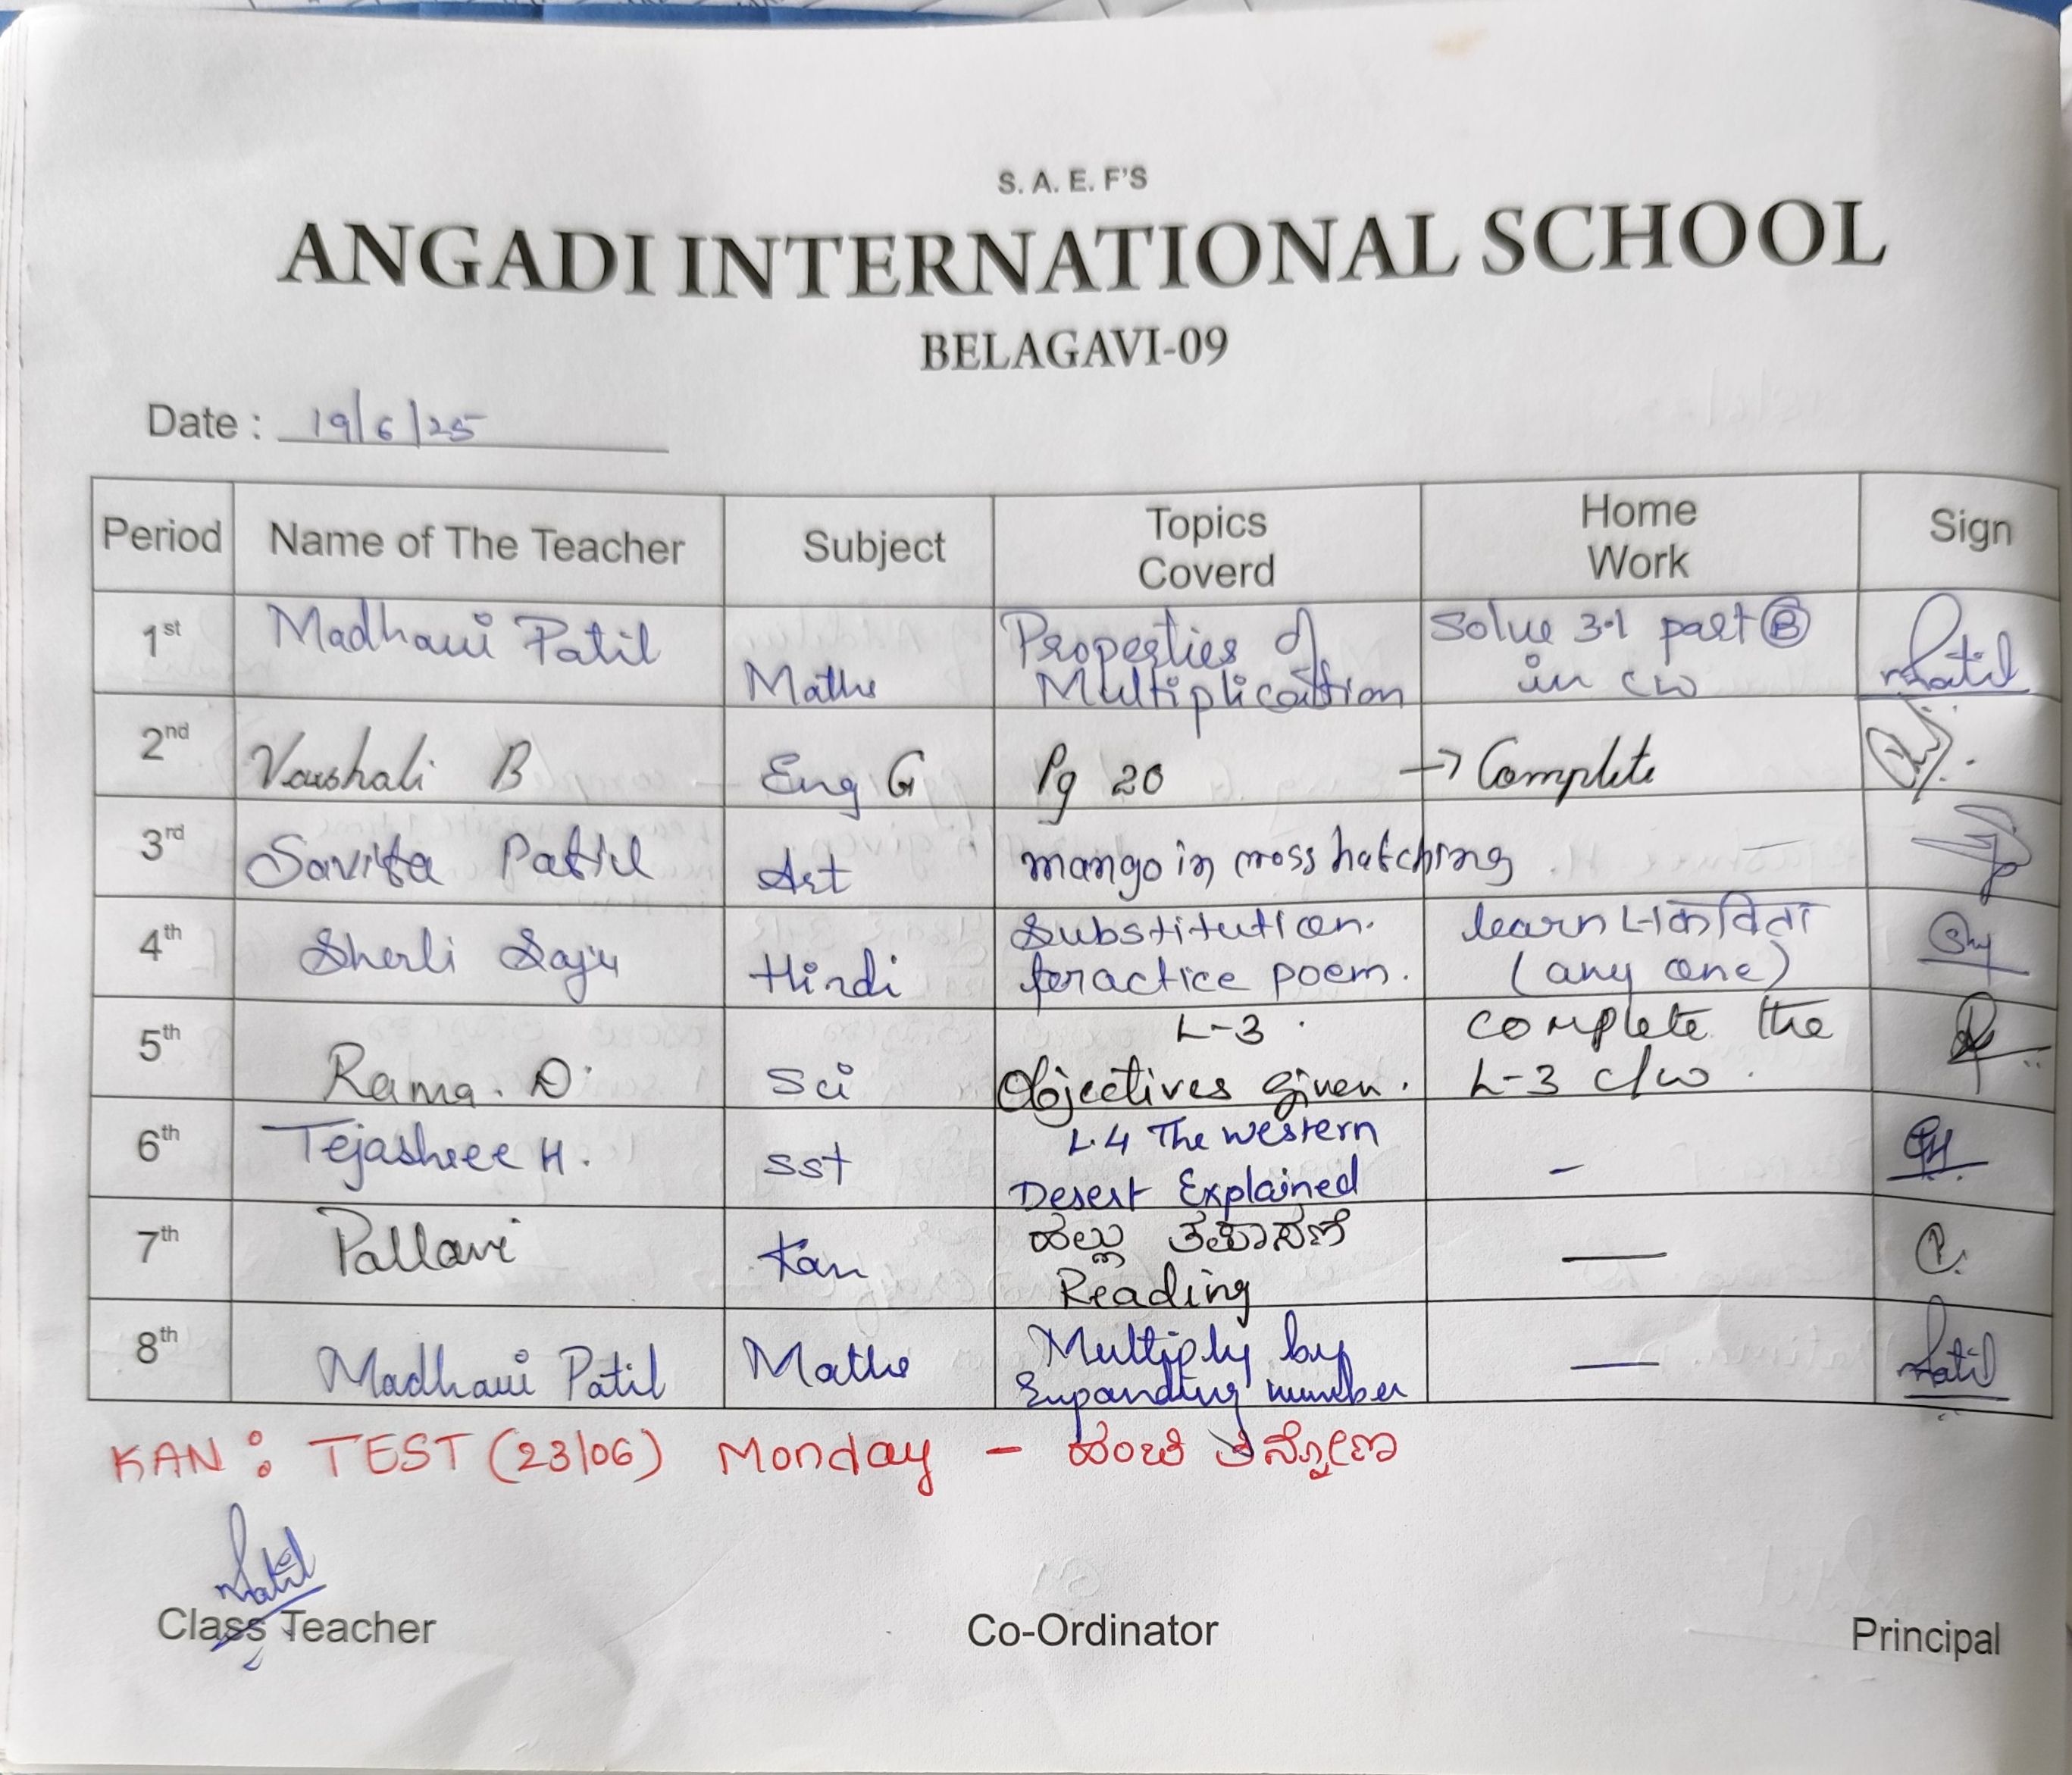 S. A. E. F'S
ANGADI INTERNATIONAL SCHOOL
BELAGAVI-09
Date : 19/6/25
Period Name of The Teacher Subject Topics Coverd Home Work Sign
1st Madhavi Patil Maths Properties of Multiplication Solve 3.1 part Ⓑ in cw Patil
2nd Vaishali B Eng G Pg 20 → Complete
3rd Savita Patil Art mango in cross hatching —
4th Sherli Saju Hindi Substitution. practice poem. learn L-1 कविता (any one)
5th Rama. D. Sci L-3 Objectives given. complete the L-3 c/w.
6th Tejashree H. SSt L.4 The western Desert Explained –
7th Pallavi Kan ಹಲ್ಲು ತಪಾಸಣೆ Reading —
8th Madhavi Patil Maths Multiply by Expanding number — Patil
KAN : TEST (23/06) Monday – ಹಂಚಿ ತಿನ್ನೋಣ
Patil
Class Teacher Co-Ordinator Principal